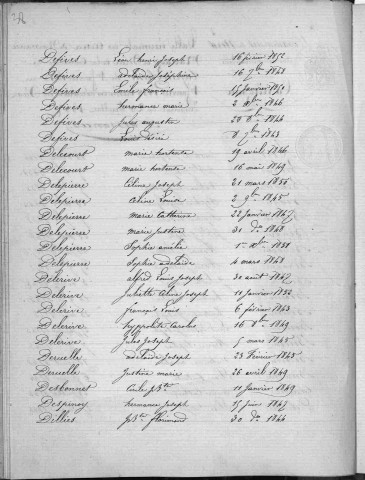 Defives Léon henri Joseph 16 février 1852
Defives adélaïde Joséphine 16 9bre 1848
Defives Emile françois 15 janvier 1851
Defives hermance marie 2 Xbre 1846
Defives Jules auguste 20 Xbre 1844
Defives Louis 8 7bre 1843
Delecourt marie hortense 19 avril 1846
Delecourt marie hortense 16 mai 1849
Delepierre Celina Joseph 21 mars 1850
Delepierre Celina Louise 2 9bre 1845
Delepierre Marie Catherine 22 janvier 1847
Delepierre marie Justine 30 do 1848
Delepierre Sophie amelie 1er Xbre 1851
Delepierre Sophie adelaide 4 mars 1843
Delerive alfred Louis Joseph 30 aout 1847
Delerive Juliette Celina Joseph 11 janvier 1852
Delerive françois Louis 6 février 1843
Delerive hyppolite Carolus 16 8bre 1849
Delerive Jules Joseph 5 mars 1845
Deruelle adelaide Joseph 23 février 1845
Deruelle Justine marie 26 avril 1849
Desbonnet Emile Jh Bte 11 janvier 1849
Despinoy hermance Joseph 15 juin 1847
Dillies Jn Bte florimond 30 do 1844